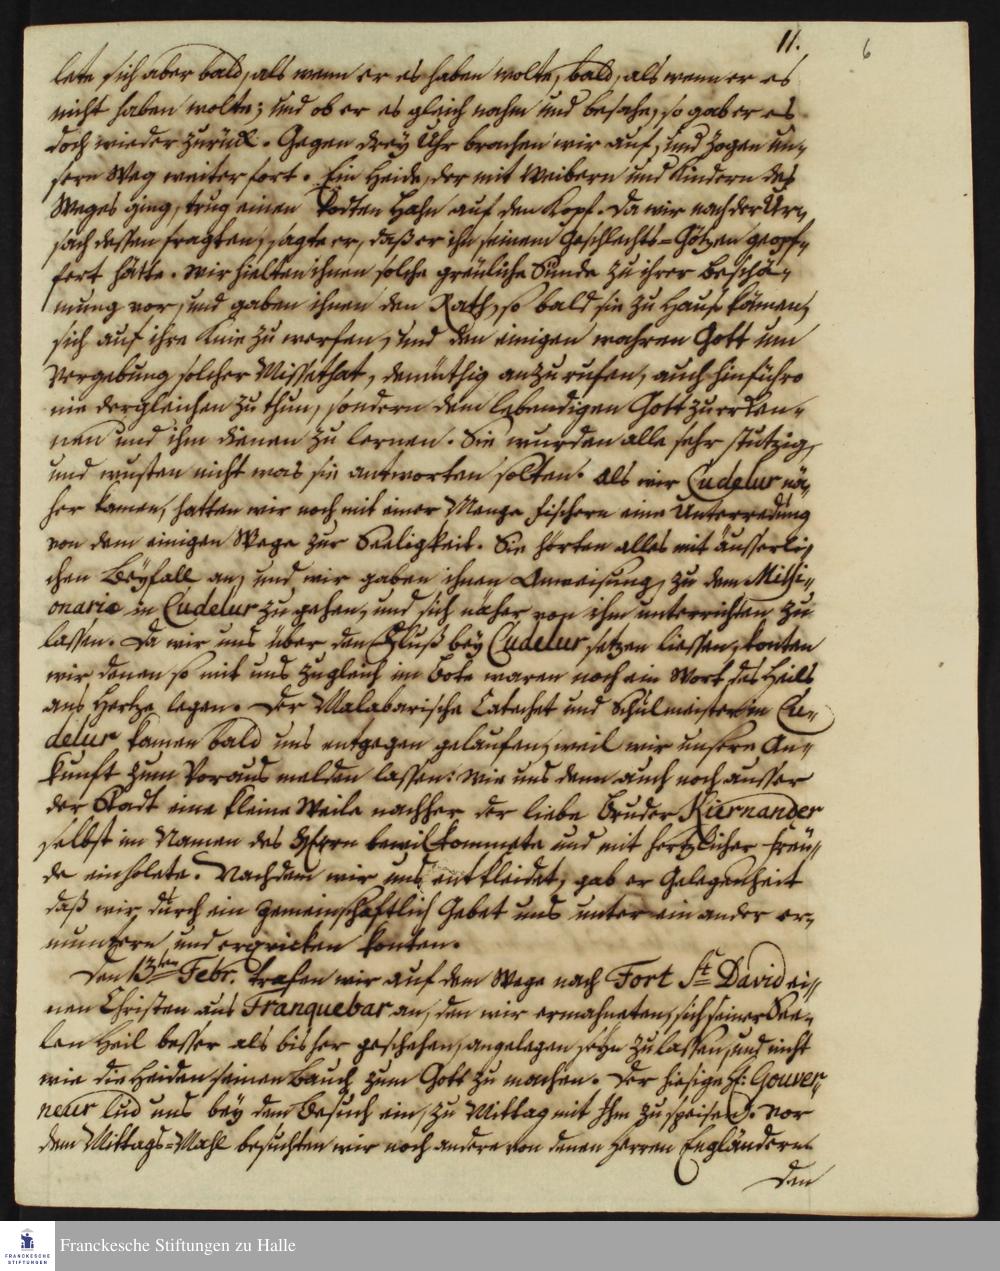 11.
6
lete sich aber bald, als wenn er es haben wolte, bald, als wenn er es
nicht haben wolte; und ob er es gleich nahm und besahe, so gab er es
doch wieder zurück. Gegen drey Uhr brachen wir auf, und zogen un-
sern Weg weiter fort. Ein Heide, der mit Weibern und Kindern des
Weges ging, trug einen todten Hahn auf den Kopf. Da wir nach der Ur-
sach dessen fragten, sagte er, daß er ihn seinem Geschlechts-Götzen geopf-
fert hätte. Wir hielten ihnen solche greuliche Sünde zu ihrer Beschä-
mung vor, und gaben ihnen den Rath, so bald sie zu Hauß kämen,
sich auf ihre Knie zu werfen, und den einigen wahren Gott um
Vergebung solcher Missethat, demüthig anzurufen, auch hinführo
nie dergleichen zu thun, sondern dem lebendigen Gott zu erken-
nen und ihm dienen zu lernen. Sie wurden alle sehr stutzig,
und wusten nicht was sie antworten solten. Als wir Cudelur nä-
her kamen, hatten wir noch mit einer Menge Fischern eine Unterredung
von dem einigen Wege zur Seeligkeit. Sie hörten alles mit äusserli-
chen Beyfall an, und wir gaben ihnen Anweisung, zu dem Missi-
onario in Cudelur zu gehen, und sich näher von ihm unterrichten zu
lassen. Da wir uns über den Fluß bey Cudelur setzen liessen, konten
wir denen so mit uns zugleich im Bote waren noch ein Wort des Heils
ans Hertze legen. Der Malabarische Catechet und Schulmeister in Cu-
delur kamen bald uns entgegen gelaufen, weil wir unsere An-
kunft zum Voraus melden lassen: wie uns denn auch noch ausser
der Stadt eine kleine Weile nachher der liebe Bruder Kiernander
selbst im Namen des HErrn bewillkommete und mit hertzlicher Freu-
de einholete. Nachdem wir uns entkleidet, gab er Gelegenheit
daß wir durch ein gemeinschaftlich Gebet uns unter einander er-
muntern und erqvicken konten.
Den 13ten Febr. trafen wir auf dem Wege nach Fort St David ei-
nen Christen aus Tranquebar an, den wir ermahneten, sich seiner See-
len Heil besser als bisher geschehen, angelegen seyn zu lassen, und nicht
wie die Heiden seinen Bauch zum Gott zu machen. Der hiesige H: Gouver-
neur lud uns bey dem Besuch ein, zu Mittag mit Ihm zu speisen. Vor
dem Mittags-Mahl besuchten wir noch andere von denen Herren Engländern.
Den
FRANCKESCHE
STIFTUNGEN
Franckesche Stiftungen zu Halle